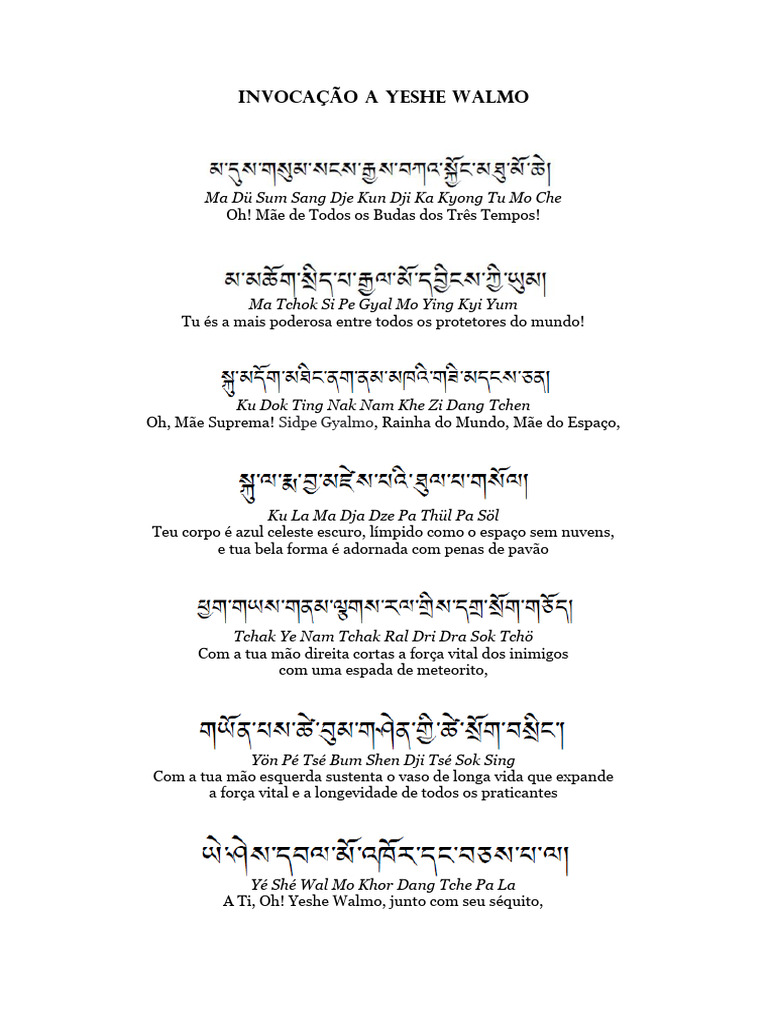 INVOCAÇÃO A YESHE WALMO
མ་དུས་གསུམ་སངས་རྒྱས་བཀའ་སྐྱོང་མཐུ་མོ་ཆེ།
Ma Dü Sum Sang Dje Kun Dji Ka Kyong Tu Mo Che
Oh! Mãe de Todos os Budas dos Três Tempos!
མ་མཆོག་སྲིད་པ་རྒྱལ་མོ་དབྱིངས་ཀྱི་ཡུམ།
Ma Tchok Si Pe Gyal Mo Ying Kyi Yum
Tu és a mais poderosa entre todos os protetores do mundo!
སྐུ་མདོག་མཐིང་ནག་ནམ་མཁའི་གཟི་མདངས་ཅན།
Ku Dok Ting Nak Nam Khe Zi Dang Tchen
Oh, Mãe Suprema! Sidpe Gyalmo, Rainha do Mundo, Mãe do Espaço,
སྐུ་ལ་རྨ་བྱ་མཛེས་པའི་ཐུལ་པ་གསོལ།
Ku La Ma Dja Dze Pa Thül Pa Söl
Teu corpo é azul celeste escuro, límpido como o espaço sem nuvens,
e tua bela forma é adornada com penas de pavão
ཕྱག་གཡས་གནམ་ལྕགས་རལ་གྲིས་དགྲ་སྲོག་གཅོད།
Tchak Ye Nam Tchak Ral Dri Dra Sok Tchö
Com a tua mão direita cortas a força vital dos inimigos
com uma espada de meteorito,
གཡོན་པས་ཚེ་བུམ་གཤེན་གྱི་ཚེ་སྲོག་བསྲིང་།
Yön Pé Tsé Bum Shen Dji Tsé Sok Sing
Com a tua mão esquerda sustenta o vaso de longa vida que expande
a força vital e a longevidade de todos os praticantes
ཡེ་ཤེས་དབལ་མོ་འཁོར་དང་བཅས་པ་ལ།
Yé Shé Wal Mo Khor Dang Tche Pa La
A Ti, Oh! Yeshe Walmo, junto com seu séquito,